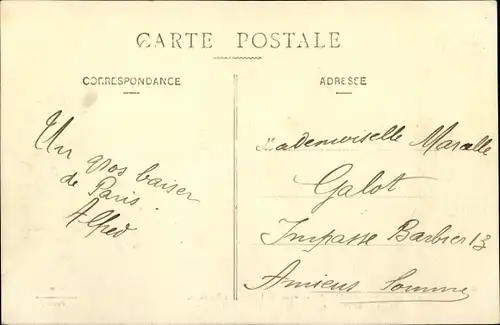 CARTE POSTALE
CORRESPONDANCE
ADRESSE
Un gros baiser
de Paris.
Alfred
Mademoiselle Marcelle
Galot
Impasse Barbier 13
Amiens Somme